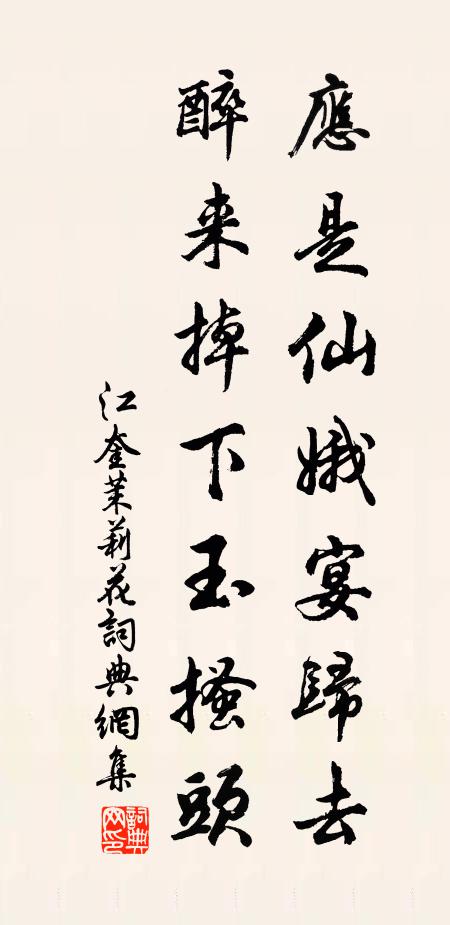 應是仙娥宴歸去
醉来掉下玉搔頭
江奎茉莉花詞典網集
詞典网印